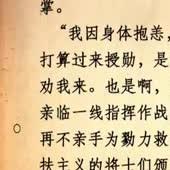 掌。
“我因身体抱恙，
打算过来授勋，是
劝我来。也是啊，
亲临一线指挥作战
再不亲手为勠力救
扶主义的将士们颁